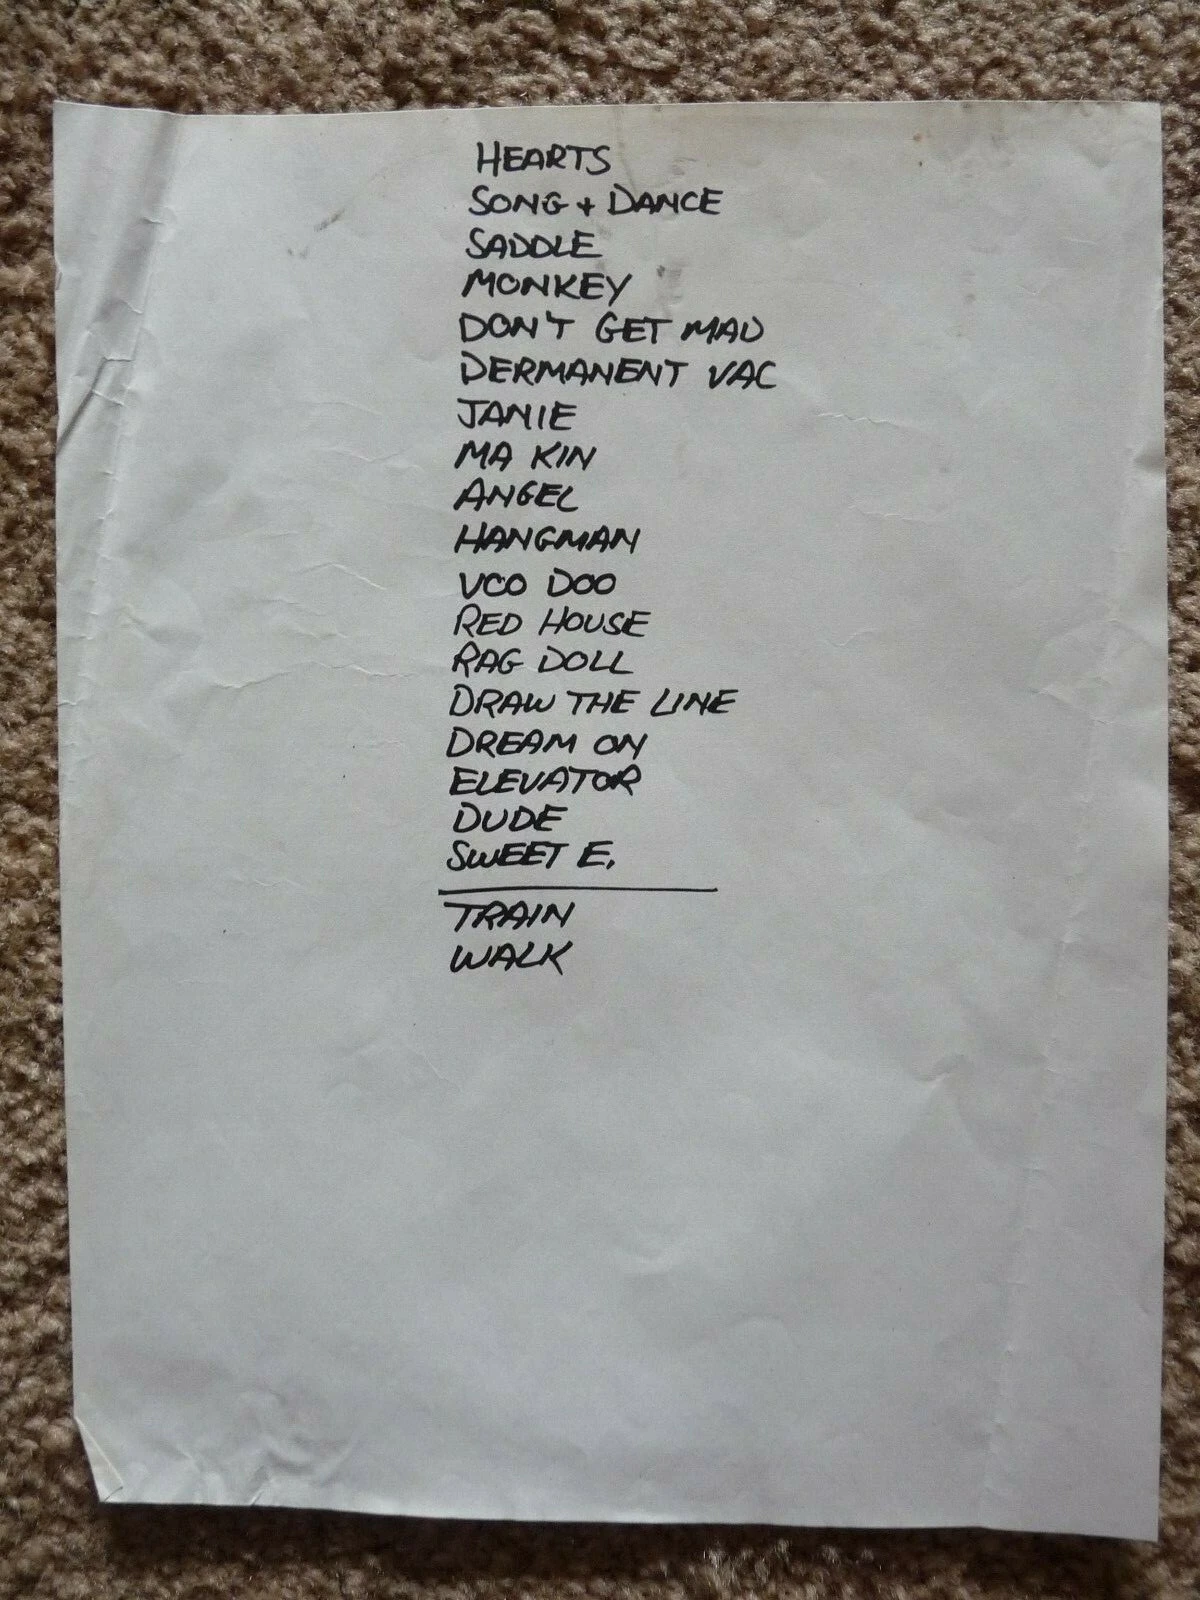 HEARTS
SONG + DANCE
SADDLE
MONKEY
DON'T GET MAD
PERMANENT VAC
JANIE
MA KIN
ANGEL
HANGMAN
VOO DOO
RED HOUSE
RAG DOLL
DRAW THE LINE
DREAM ON
ELEVATOR
DUDE
SWEET E.
TRAIN
WALK